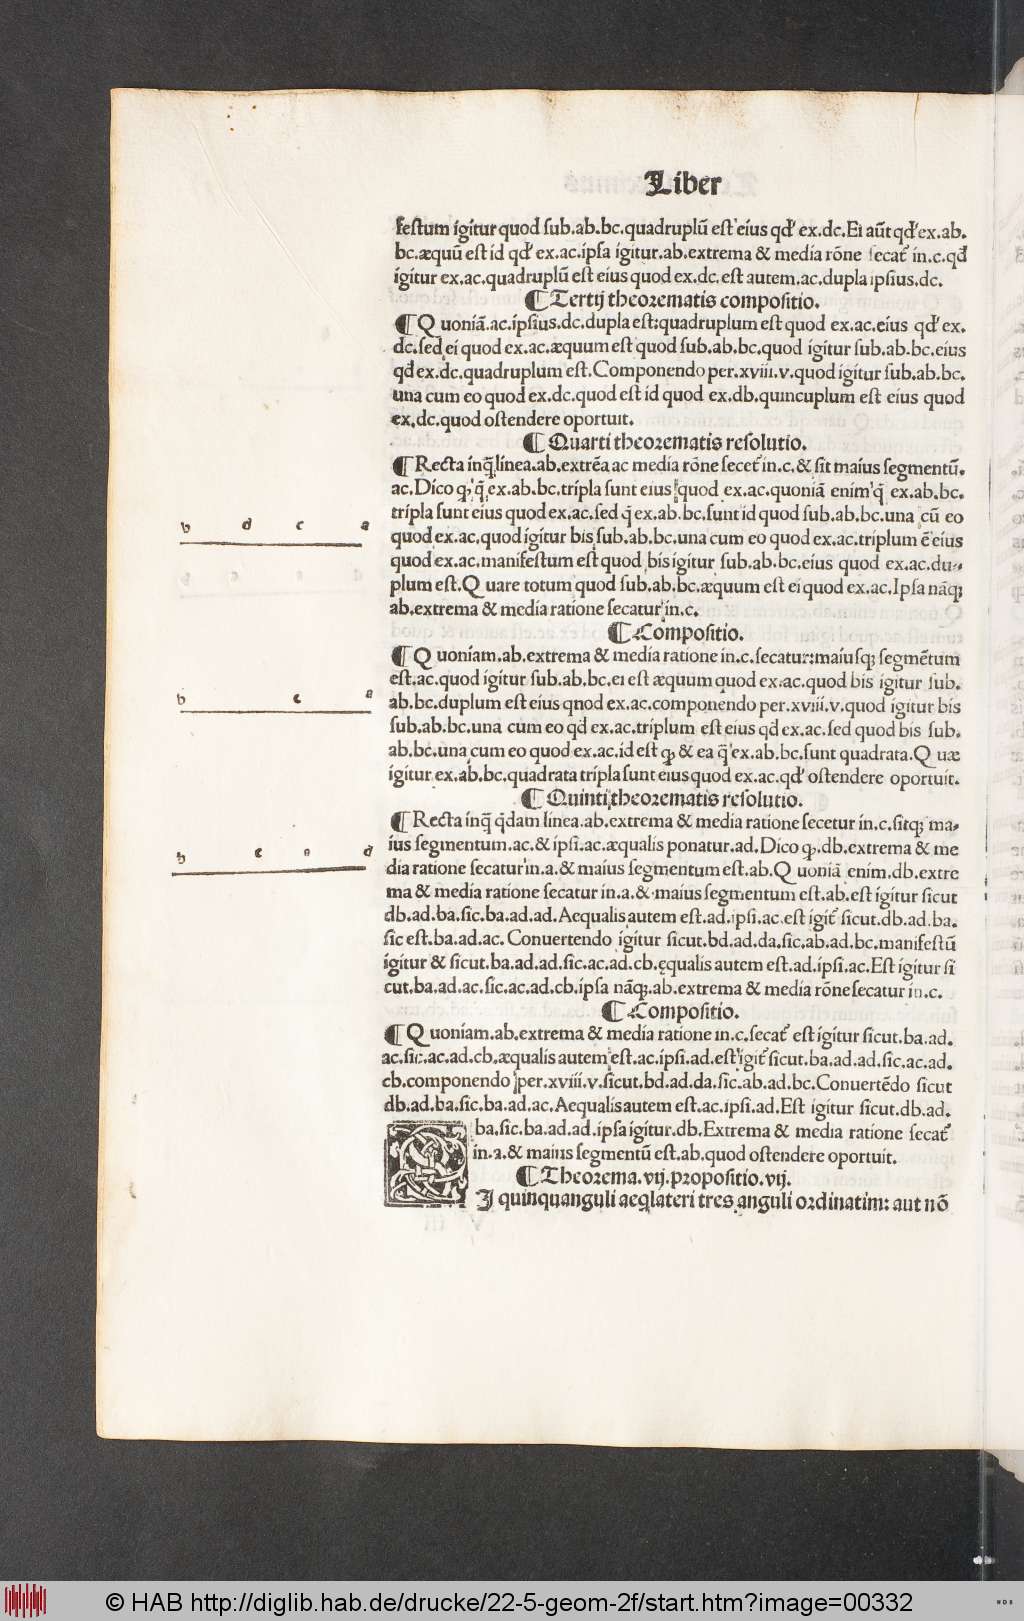 Liber
festum igitur quod sub.ab.bc.quadruplũ est eius qđ ex.dc.Ei aũt qđ ex.ab.
bc.æquũ est id qđ ex.ac.ipsa igitur.ab.extrema & media rõne secať in.c.qđ
igitur ex.ac.quadruplũ est eius quod ex.dc.est autem.ac.dupla ipsius.dc.
¶Tertij theorematis compositio.
¶Quoniã.ac.ipsius.dc.dupla est:quadruplum est quod ex.ac.eius qđ ex.
dc.sed ei quod ex.ac.æquum est quod sub.ab.bc.quod igitur sub.ab.bc.eius
qđ ex.dc.quadruplum est.Componendo per.xviii.v.quod igitur sub.ab.bc.
una cum eo quod ex.dc.quod est id quod ex.db.quincuplum est eius quod
ex.dc.quod ostendere oportuit.
¶Quarti theorematis resolutio.
¶Recta inq̃ linea.ab.extrẽa ac media rõne seceť in.c.& sit maius segmentũ.
ac.Dico ꝙ q̃ ex.ab.bc.tripla sunt eius quod ex.ac.quoniã enim q̃ ex.ab.bc.
tripla sunt eius quod ex.ac.sed q̃ ex.ab.bc.sunt id quod sub.ab.bc.una cũ eo
quod ex.ac,quod igitur bis sub.ab.bc.una cum eo quod ex.ac.triplum ẽ eius
quod ex.ac.manifestum est quod bis igitur sub.ab.bc.eius quod ex.ac.du-
plum est.Quare totum quod sub.ab.bc.æquum est ei quod ex.ac.Ipsa nãq;
ab.extrema & media ratione secatur in.c.
b d c a
¶Compositio.
¶Quoniam.ab.extrema & media ratione in.c.secatur:maiusq; segmẽtum
est.ac.quod igitur sub.ab.bc.ei est æquum quod ex.ac.quod bis igitur sub.
ab.bc.duplum est eius qnod ex.ac.componendo per.xviii.v.quod igitur bis
sub.ab.bc.una cum eo qđ ex.ac.triplum est eius qđ ex.ac.sed quod bis sub.
ab.bc.una cum eo quod ex.ac.id est ꝙ & ea q̃ ex.ab.bc.sunt quadrata.Quæ
igitur ex.ab.bc.quadrata tripla sunt eius quod ex.ac.qđ ostendere oportuit.
b c a
¶Quinti theorematis resolutio.
¶Recta inq̃ q̃dam linea.ab.extrema & media ratione secetur in.c.sitq; ma-
ius segmentum.ac.& ipsi.ac.æqualis ponatur.ad.Dico ꝙ.db.extrema & me
dia ratione secatur in.a.& maius segmentum est.ab.Quoniã enim.db.extre
ma & media ratione secatur in.a.& maius segmentum est.ab.est igitur sicut
db.ad.ba.sic.ba.ad.ad.Aequalis autem est.ad.ipsi.ac.est igiť sicut.db.ad.ba.
sic est.ba.ad.ac.Conuertendo igitur sicut.bd.ad.da.sic.ab.ad.bc.manifestũ
igitur & sicut.ba.ad.ad.sic.ac.ad.cb.ęqualis autem est.ad.ipsi.ac.Est igitur si
cut.ba.ad.ac.sic.ac.ad.cb.ipsa nãq;.ab.extrema & media rõne secatur in.c.
b c a d
¶Compositio.
¶Quoniam.ab.extrema & media ratione in.c.secať est igitur sicut.ba.ad.
ac.sic.ac.ad.cb.æqualis autem est.ac.ipsi.ad.est igiť sicut.ba.ad.ad.sic.ac.ad.
cb.componendo per.xviii.v.sicut.bd.ad.da.sic.ab.ad.bc.Conuertẽdo sicut
db.ad.ba.sic.ba.ad.ac.Aequalis autem est.ac.ipsi.ad.Est igitur sicut.db.ad.
ba.sic.ba.ad.ad.ipsa igitur.db.Extrema & media ratione secať
in.a.& maius segmentũ est.ab.quod ostendere oportuit.
¶Theorema.vij.propositio.vij.
SI quinquanguli aeq̃lateri tres anguli ordinatim: aut nõ
© HAB http://diglib.hab.de/drucke/22-5-geom-2f/start.htm?image=00332